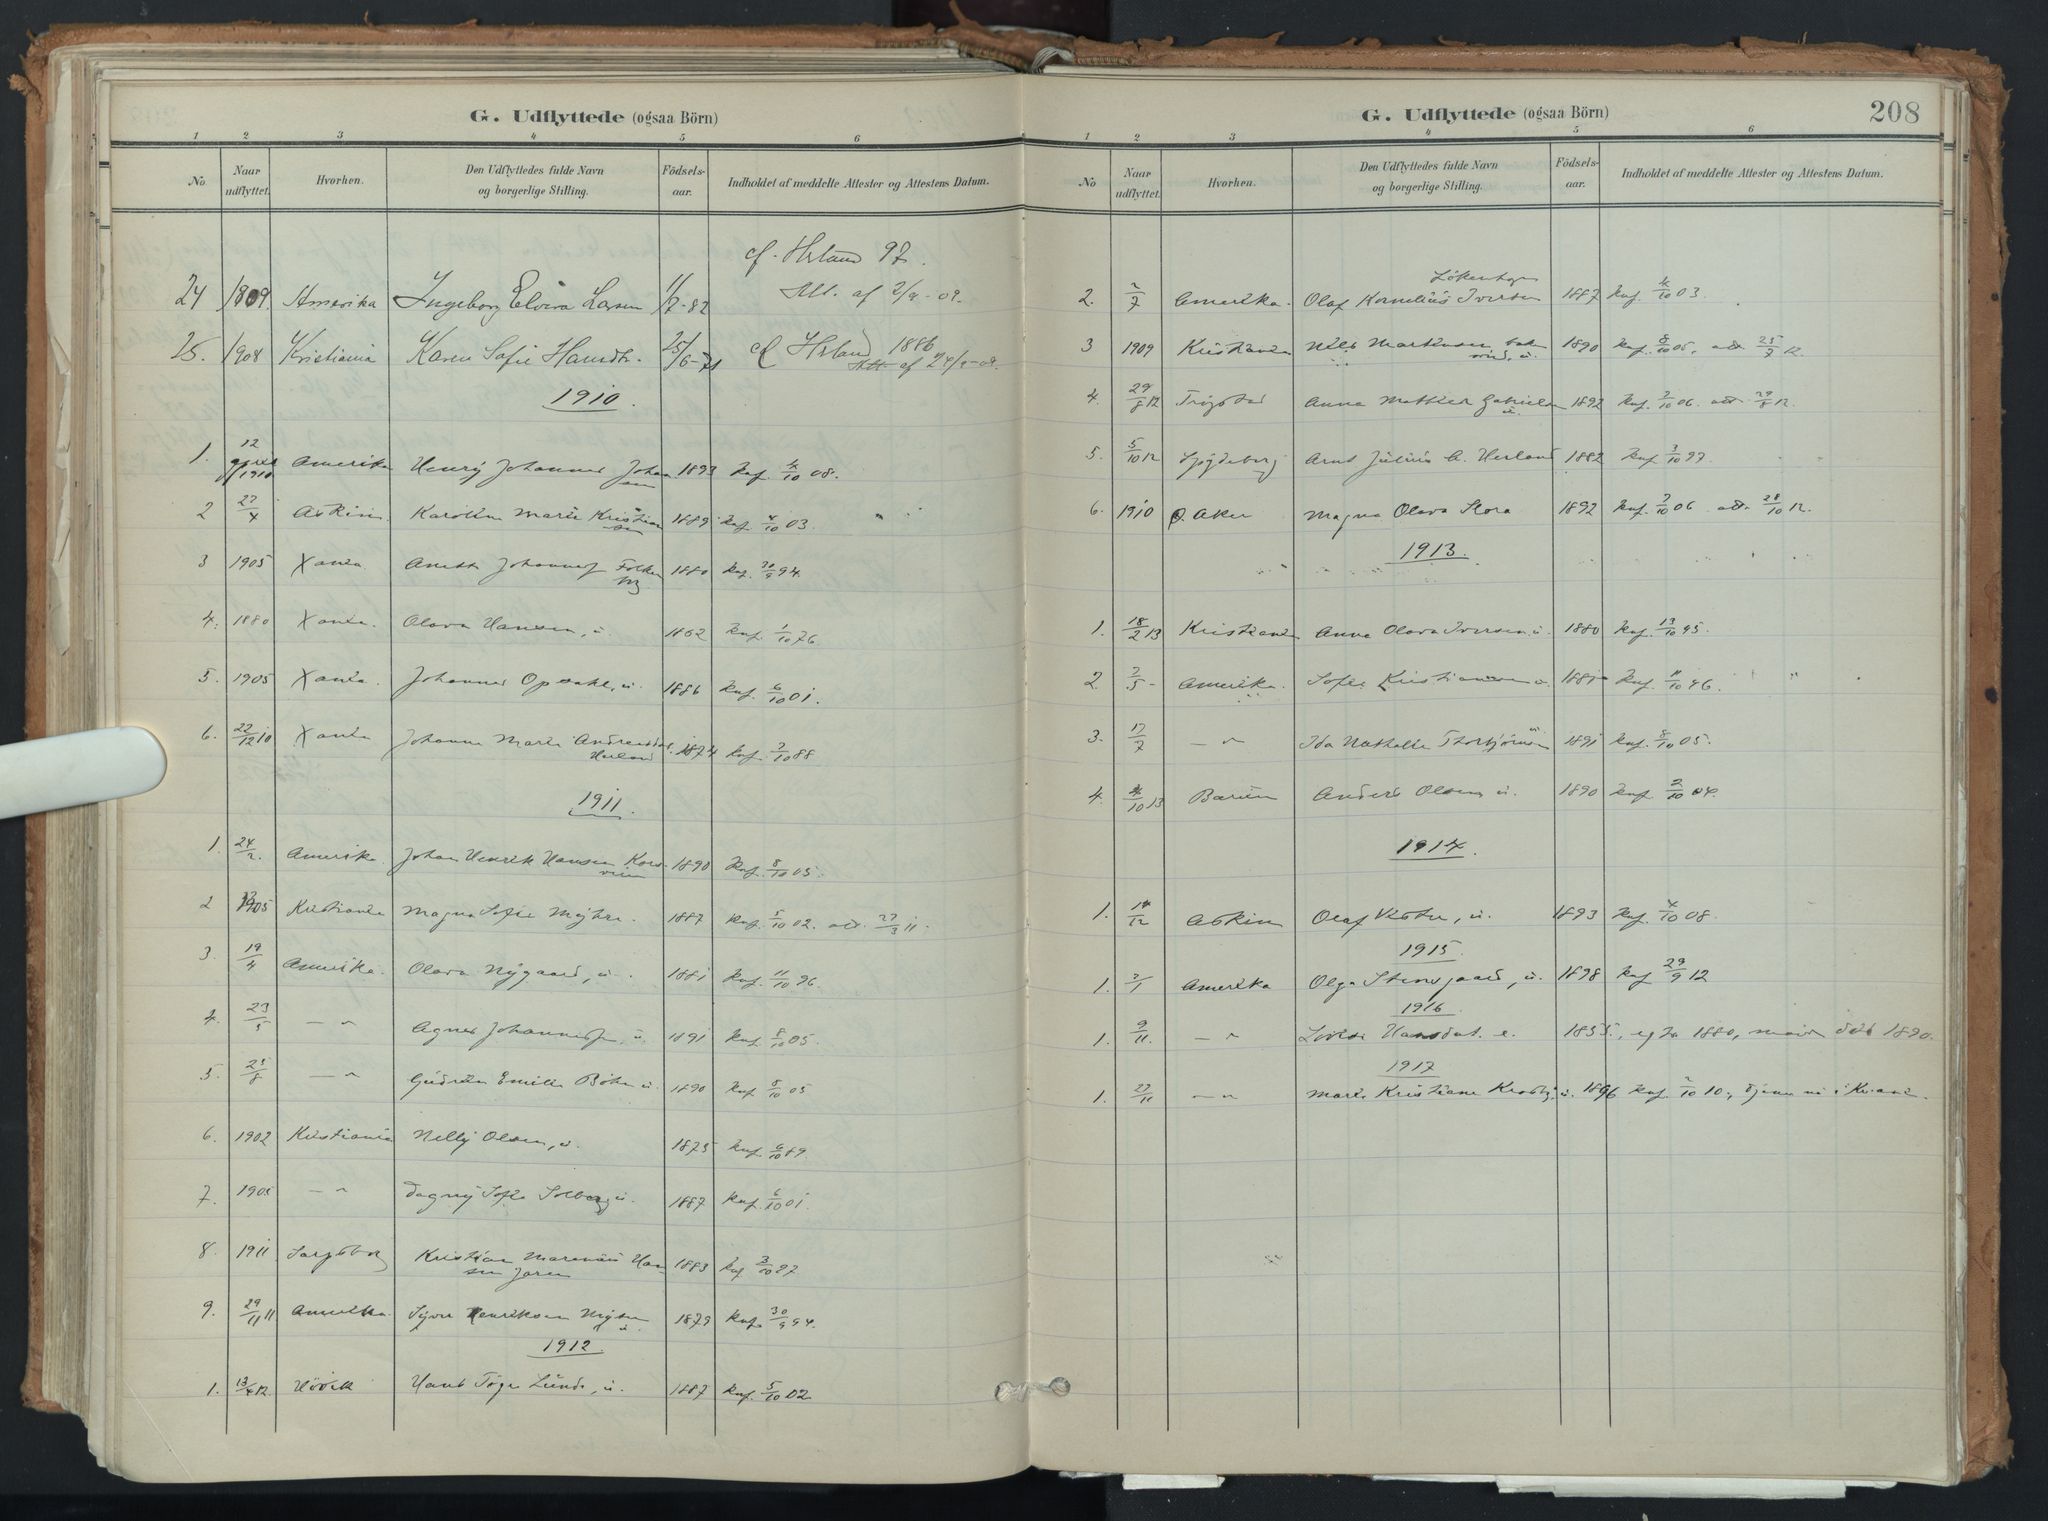 G. Udflyttede (ogsaa Börn)
1 2 3 4 5 6
No. Naar udflyttet. Hvorhen. Den Udflyttedes fulde Navn og borgerlige Stilling. Födsels-aar. Indholdet af meddelte Attester og Attestens Datum.
cf. Herland 97.
24 1909. Amerika Ingeborg Elvira Larsen 11/7-82 Att. af 2/9-09.
25. 1908 Kristiania Karen Sofie 25/6-71 cf Herland 1886
1910.
1. 12 april 1910 Amerika Henry Johannes Johan 1893 Knf. 4/10 08.
sen
2 27/4 Askim Karoline Marie Kristian 1889 Knf. 4/10 03.
sen
3 1905 Xania. Anette Johannes 1880 Knf. 30/9 94.
4. 1880 Xania. Olava Hansen, u. 1862 Knf. 1/10 76.
5. 1905 Xania. Johannes Opsahl, u. 1886 Knf. 6/10 01.
6. 22/12 10 Xania Johanne Marie 1874 Knf. 7/10 88
Herland
1911.
1. 24/2. Amerika. Johan Henrik Hansen 1890 Knf. 8/10 05.
2 1905 Kristiania Magna Sofie Myhre. 1887 Knf. 5/10 02. att. 27/3 11.
3. 19/4 Amerika. Olava Nygaard, u. 1881 Knf. 11/10 96.
4. 23/5 — " Agnes Johannessen, u. 1891 Knf. 8/10 05.
5. 25/8 — " Gudrun Emilie u. 1890 Knf 8/10 05
6. 1902 Kristiania Nelly Olsen, u. 1875 Knf. 6/10 89.
7. 1905 — " Dagny Sofie Solberg u. 1887 Knf. 6/10 01.
8. 1911 Sarpsborg Kristian Marenius Han 1883 Knf 3/10 97
sen Jaren
9. 29/11 11 Amerika. Syver Henriksen Myhre 1879 Knf. 30/9 94.
u.
1912.
1. 13/4 12. Høvik Hans Lunde, u. 1887 Knf. 5/10 02
G. Udflyttede (ogsaa Börn)
208
1 2 3 4 5 6
No Naar udflyttet. Hvorhen. Den Udflyttedes fulde Navn og borgerlige Stilling. Födsels-aar. Indholdet af meddelte Attester og Attestens Datum.
2. 2/7 Amerika. Olaf Kornelius Iversen 1887 Knf. 4/10 03.
3 1909 Kristiania Nils Martinsen 1890 Knf. 8/10 05, att. 25/7 12.
4. 29/8 12 Trøgstad Anna Mathilde Gabrielsen 1892 Knf. 7/10 06. att. 29/8 12.
u.
5. 5/10 12 Spydeberg Arnt Julius A. Herland 1882 Knf 3/10 97.
6. 1910 Ø. Aker Magna Olava 1892 Knf. 7/10 06. att. 28/10 12.
1913.
1. 18/2 13 Kristiania Anna Olava Iversen u. 1880 Knf. 13/10 95.
2. 7/5 - Amerika. Sofie Kristiansen u. 1881 Knf. 11/10 96.
3. 17/7 — " Ida Nathalie Thorbjørnsen 1891 Knf. 8/10 05.
4. 4/10 13 Bærum Anders Olsen, u. 1890 Knf. 2/10 04.
1914.
1. 14/12 Askim Olaf, u. 1893 Knf. 4/10 08.
1915.
1. 7/1 Amerika Olga Stensgaard, u. 1898 Knf 29/9 12
1916
1. 9/11. — " Lovise e. 1855, 1880, 1890.
1917
1. 27/11 — " Marie Kristiane u. 1896 Knf. 2/10 10.,